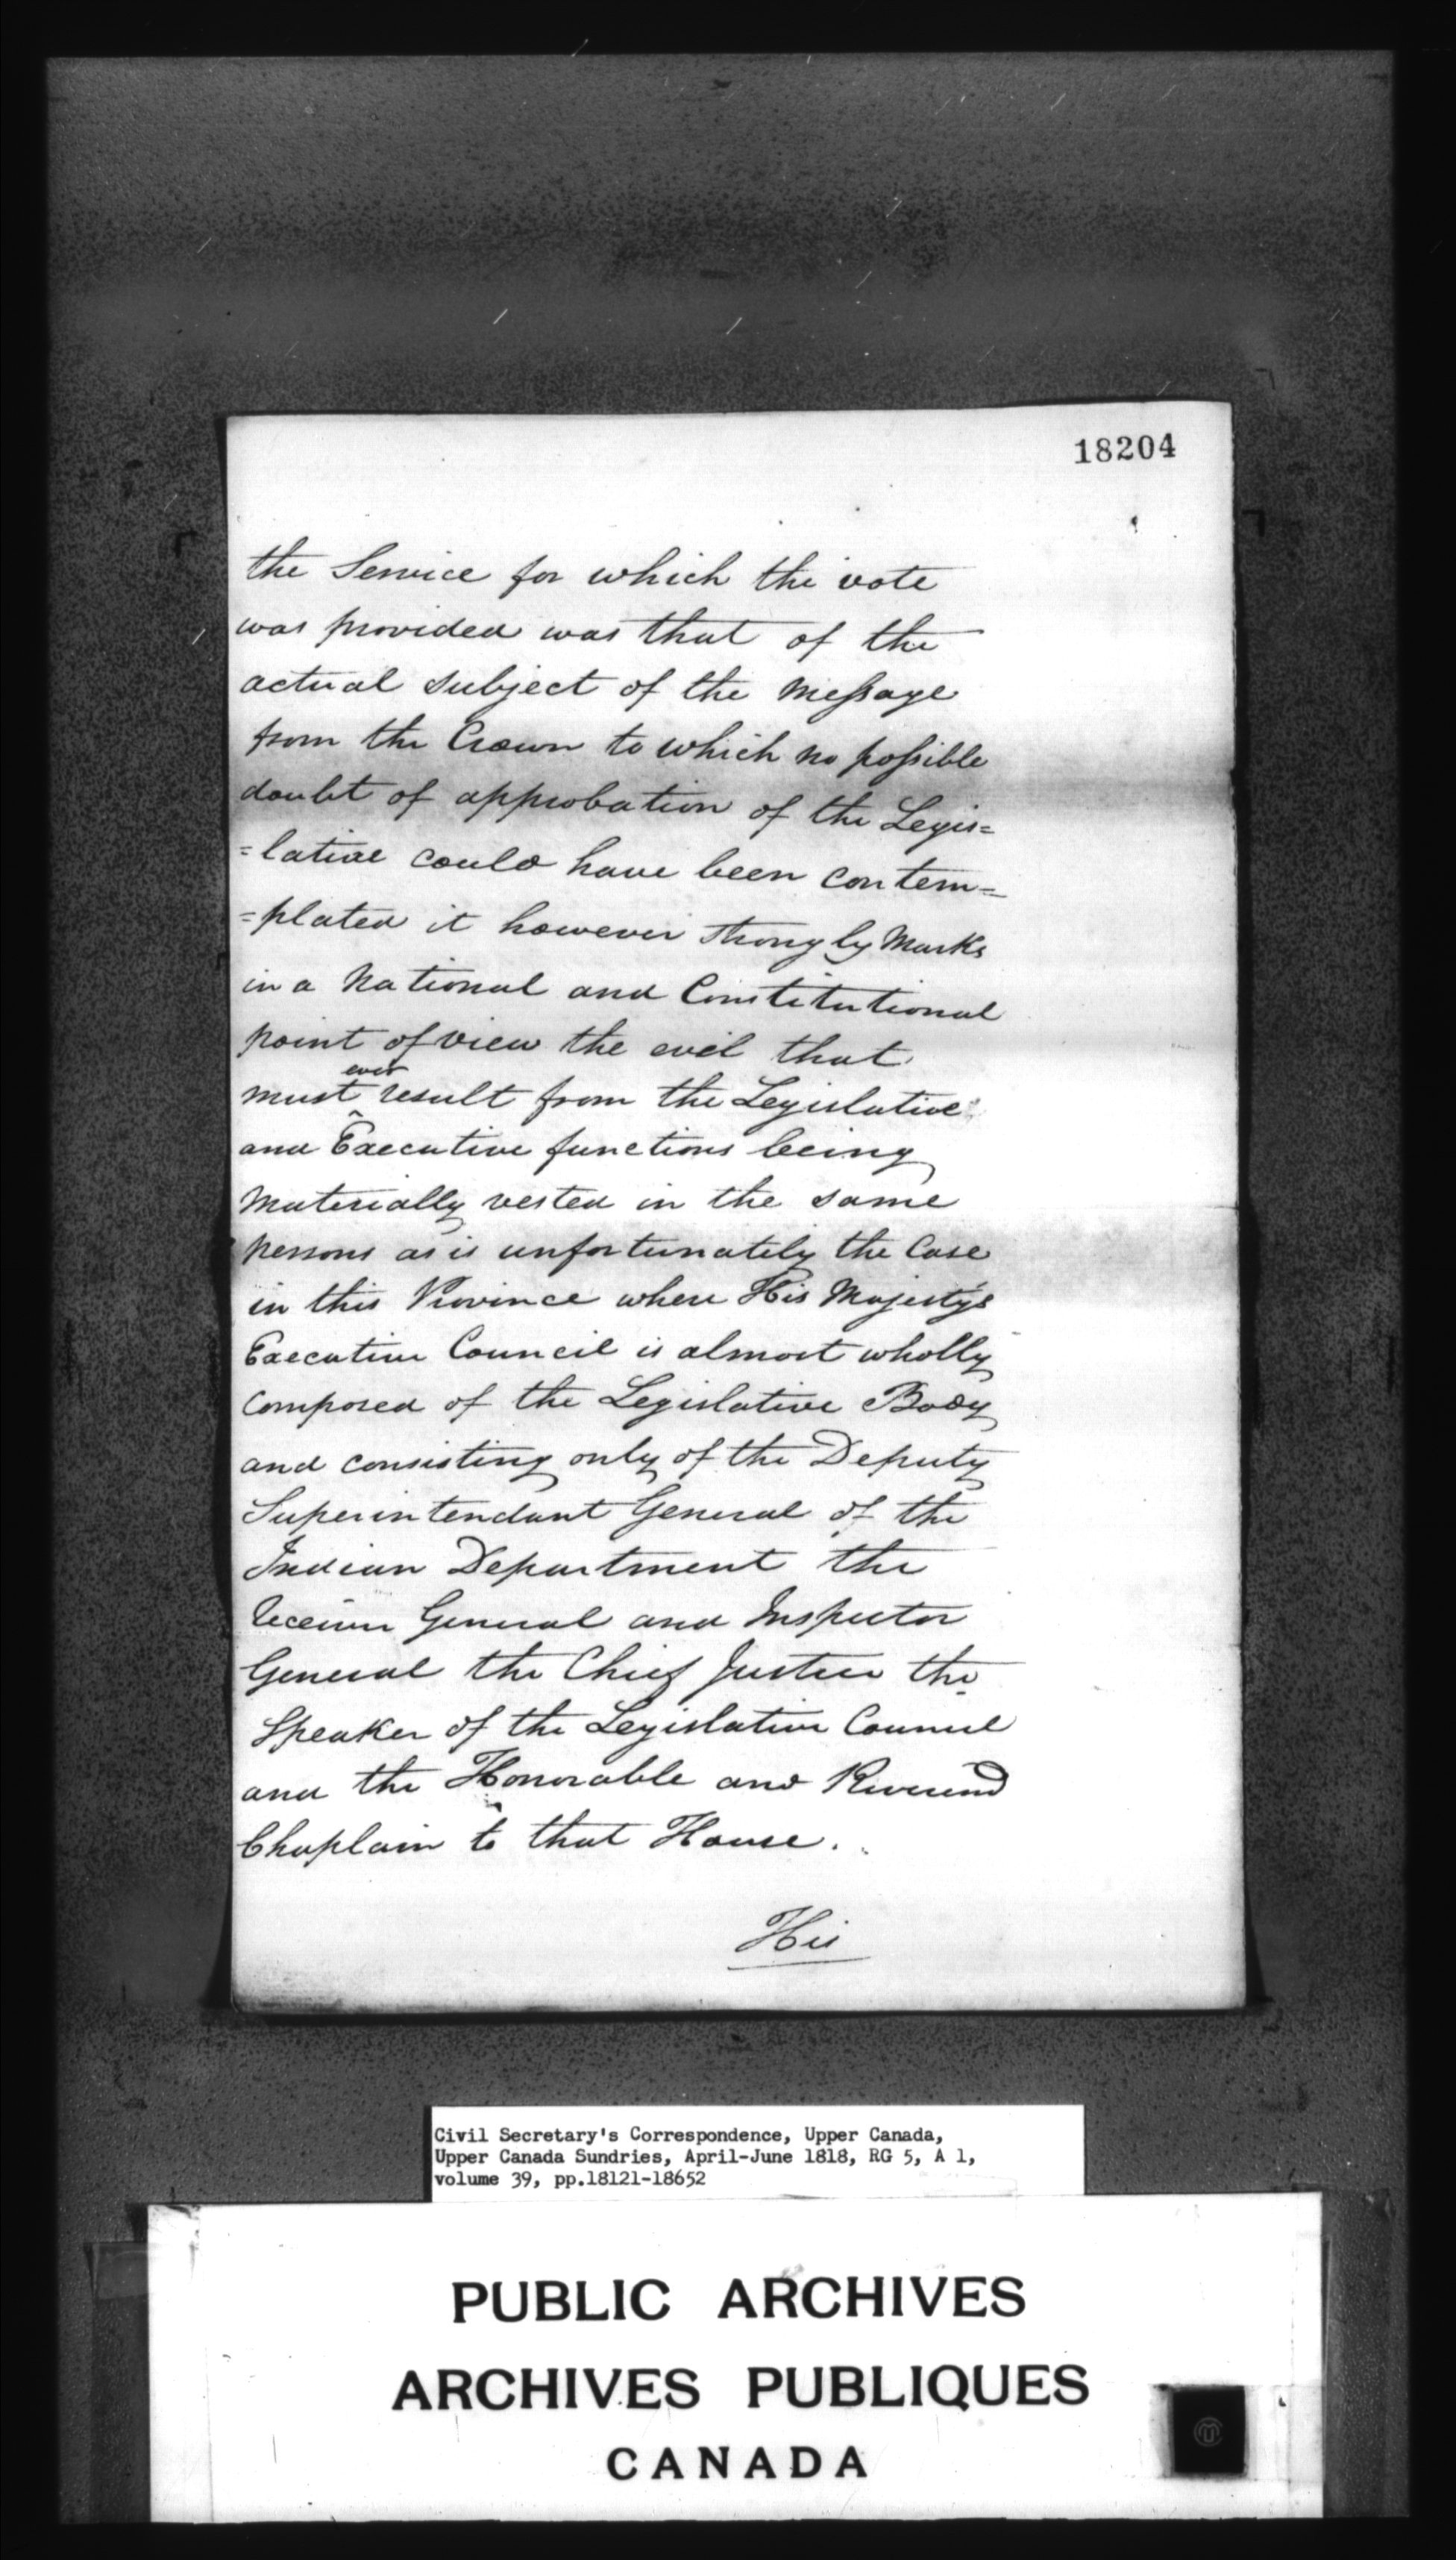 18204
the Service for which the vote
was provided was that of the
actual subject of the Message
from the Crown to which no possible
doubt of approbation of the Legis=
=lative could have been contem=
=plated it however strongly Marks
in a National and Constitutional
point of view the evil that
ever
must result from the Legislative
and Executive functions being
Materially vested in the same
persons as is unfortunately the Case
in this Province where His Majesty's
Executive Council is almost wholly
Composed of the Legislative Body
and consisting only of the Deputy
Superintendant General of the
Indian Department the
Receiver General and Inspector
General the Chief Justice the
Speaker of the Legislative Council
and the Honorable and Reverend
Chaplain to that House.
His
Civil Secretary's Correspondence, Upper Canada,
Upper Canada Sundries, April-June 1818, RG 5, A 1,
volume 39, pp.18121-18652
PUBLIC ARCHIVES
ARCHIVES PUBLIQUES
CANADA